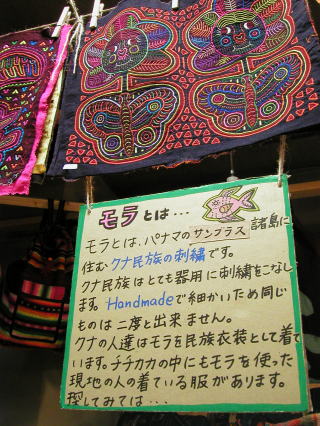 モラとは…
モラとは、パナマのサンブラス諸島に
住むクナ民族の刺繍です。
クナ民族はとても器用に刺繍をこなし
ます。Handmadeで細かいため同じ
ものは二度と出来ません。
クナの人達はモラを民族衣装として着て
います。チチカカの中にもモラを使った
現地の人の着ている服があります。
探してみては…